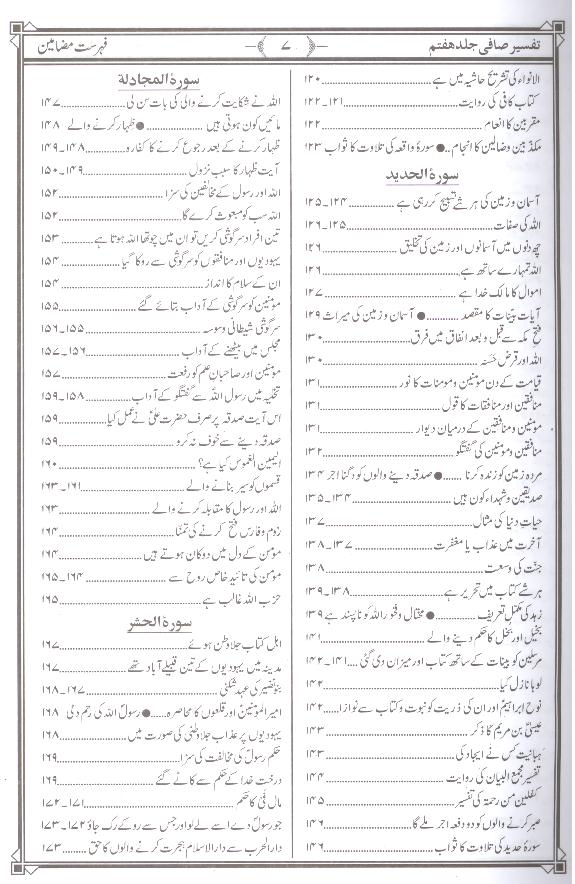 تفسیر صافی جلد ہفتم
۷
فہرست مضامین
الانواء کی تشریح حاشیہ میں ہے ۱۲۰
کتاب کافی کی روایت ۱۲۱۔۱۲۲
مقربین کا انعام ۱۲۲
مکذبین وضالین کا انجام ● سورۂ واقعہ کی تلاوت کا ثواب ۱۲۳
سورة الحديد
آسمان وزمین کی ہر شے تسبیح کر رہی ہے ۱۲۴۔۱۲۵
اللہ کی صفات ۱۲۵۔۱۲۶
چھ دنوں میں آسمانوں اور زمین کی تخلیق ۱۲۶
اللہ تمہارے ساتھ ہے ۱۲۶
اموال کا مالک خدا ہے ۱۲۷
آیات بینات کا مقصد ● آسمان و زمین کی میراث ۱۲۹
فتح مکہ سے قبل و بعد انفاق میں فرق ۱۳۰
اللہ اور قرض حسنہ ۱۳۰
قیامت کے دن مومنین ومومنات کا نور ۱۳۱
منافقین اور منافقات کا قول ۱۳۱
مومنین ومنافقین کے درمیان دیوار ۱۳۱
منافقین ومومنین کی گفتگو ۱۳۲
مردہ زمین کو زندہ کرنا ● صدقہ دینے والوں کو دگنا اجر ۱۳۴
صدیقین وشہداء کون ہیں ۱۳۴۔۱۳۵
حیات دنیا کی مثال ۱۳۷
آخرت میں عذاب یا مغفرت ۱۳۷۔۱۳۸
جنت کی وسعت ۱۳۸
ہر شے کتاب میں تحریر ہے ۱۳۸۔۱۳۹
زہد کی مکمل تعریف ● مختال وفخور اللہ کو ناپسند ہے ۱۳۹
بخیل اور بخل کا حکم دینے والے ۱۴۱
مرسلین کو بینات کے ساتھ کتاب اور میزان دی گئی ۱۴۱۔۱۴۲
لوہا نازل کیا ۱۴۲
نوح ابراہیم اور ان کی ذریت کو نبوت وکتاب سے نوازا ۱۴۲
عیسیٰ بن مریم کا ذکر ۱۴۳
رہبانیت کس نے ایجاد کی ۱۴۳
تفسیر مجمع البیان کی روایت ۱۴۴
کفلین من رحمۃ کی تفسیر ۱۴۵
صبر کرنے والوں کو دو دفعہ اجر ملے گا ۱۴۶
سورۂ حدید کی تلاوت کا ثواب ۱۴۶
سورة المجادلة
اللہ نے شکایت کرنے والی کی بات سن لی ۱۴۷
مائیں کون ہوتی ہیں ● ظہار کرنے والے ۱۴۸
ظہار کرنے کے بعد رجوع کرنے کا کفارہ ۱۴۸۔۱۴۹
آیت ظہار کا سبب نزول ۱۴۹۔۱۵۰
اللہ اور رسول کے مخالفین کی سزا ۱۵۲
اللہ سب کو مبعوث کرے گا ۱۵۲
تین افراد سرگوشی کریں تو ان میں چوتھا اللہ ہوتا ہے ۱۵۳
یہودیوں اور منافقوں کو سرگوشی سے روکا گیا ۱۵۴
ان کے سلام کا انداز ۱۵۴
مومنین کو سرگوشی کے آداب بتائے گئے ۱۵۵
سرگوشی شیطانی وسوسہ ۱۵۵۔۱۵۶
مجلس میں بیٹھنے کے آداب ۱۵۶۔۱۵۷
مومنین اور صاحبان علم کو رفعت ۱۵۷
تخلیہ میں رسول اللہ سے گفتگو کے آداب ۱۵۸۔۱۵۹
اس آیت صدقہ پر صرف حضرت علیؑ نے عمل کیا ۱۵۹
صدقہ دینے سے خوف نہ کرو ۱۵۹
الیمین الغموس کیا ہے؟ ۱۶۰
قسموں کو سپر بنانے والے ۱۶۱۔۱۶۳
اللہ اور رسول کا مقابلہ کرنے والے ۱۶۳
روم وفارس فتح کرنے کی تمنا ۱۶۴
مومن کے دل میں دو کان ہوتے ہیں ۱۶۴
مومن کی تائید خاص روح سے ۱۶۴۔۱۶۵
حزب اللہ غالب ہے ۱۶۵
سورة الحشر
اہل کتاب جلاوطن ہوئے ۱۶۷
مدینہ میں یہودیوں کے تین قبیلے آباد تھے ۱۶۷
بنو نضیر کی عہد شکنی ۱۶۷۔۱۶۸
امیر المومنین اور قلعوں کا محاصرہ ● رسول اللہ کی رحم دلی ۱۶۸
یہودیوں پر عذاب جلاوطنی کی صورت میں ۱۶۸
حکم رسول کی مخالفت کی سزا ۱۶۹
درخت خدا کے حکم سے کاٹے گئے ۱۶۹
مال فئ کا حکم ۱۷۱۔۱۷۲
جو رسول دے اسے لے لو اور جس سے روکے رک جاؤ ۱۷۲۔۱۷۳
دارالحرب سے دارالاسلام ہجرت کرنے والوں کا حق ۱۷۳